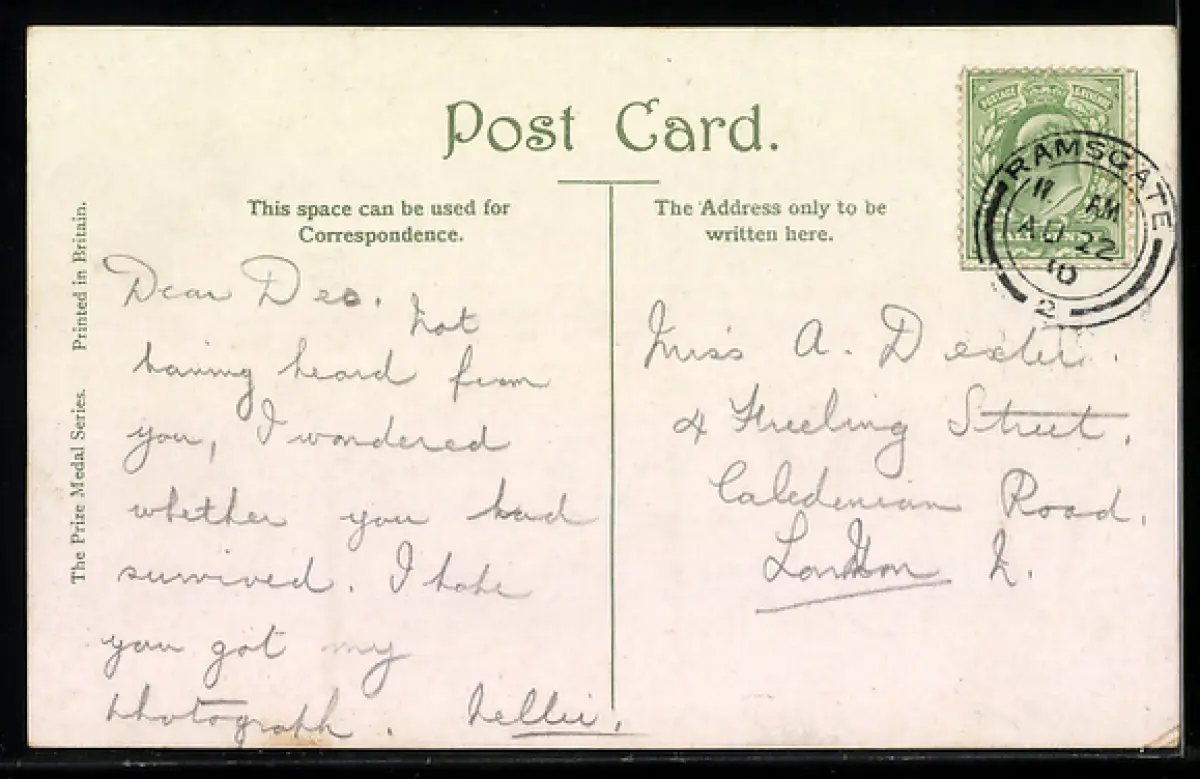 Post Card.
This space can be used for
Correspondence.
The Address only to be
written here.
The Prize Medal Series. Printed in Britain.
POSTAGE REVENUE
RAMSGATE
11 AM
AU 22
10
2
Dear Dee.
Not
having heard from
you, I wondered
whether you had
survived. I hope
you got my
photograph. Nellie.
Miss A. Dexter.
4 Freeling Street,
Caledonian Road,
London N.